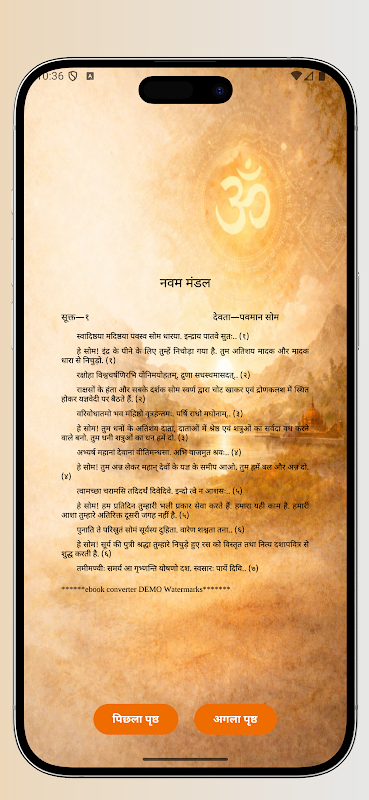 0:36
ॐ
नवम मंडल
सूक्त—१ देवता—पवमान सोम
स्वादिष्ठया मदिष्ठया पवस्व सोम धारया. इन्द्राय पातवे सुतः.. (१)
हे सोम! इंद्र के पीने के लिए तुम्हें निचोड़ा गया है. तुम अतिशय मादक और मादक
धारा से निचुड़ो. (१)
रक्षोहा विश्वचर्षणिरभि योनिमयोहतम्. द्रुणा सधस्थमासदत्.. (२)
राक्षसों के हंता और सबके दर्शक सोम स्वर्ण द्वारा चोट खाकर एवं द्रोणकलश में स्थित
होकर यज्ञवेदी पर बैठते हैं. (२)
वरिवोधातमो भव मंहिष्ठो वृत्रहन्तमः. पर्षि राधो मघोनाम्.. (३)
हे सोम! तुम धनों के अतिशय दाता, दाताओं में श्रेष्ठ एवं शत्रुओं का सर्वदा वध करने
वाले बनो. तुम धनी शत्रुओं का धन हमें दो. (३)
अभ्यर्ष महानां देवानां वीतिमन्धसा. अभि वाजमुत श्रवः.. (४)
हे सोम! तुम अन्न लेकर महान् देवों के यज्ञ के समीप आओ, तुम हमें बल और अन्न दो.
(४)
त्वामच्छा चरामसि तदिदर्थं दिवेदिवे. इन्दो त्वे न आशसः.. (५)
हे सोम! हम प्रतिदिन तुम्हारी भली प्रकार सेवा करते हैं. हमारा यही काम है. हमारी
आशा तुम्हारे अतिरिक्त दूसरी जगह नहीं है. (५)
पुनाति ते परिस्रुतं सोमं सूर्यस्य दुहिता. वारेण शश्वता तना.. (६)
हे सोम! सूर्य की पुत्री श्रद्धा तुम्हारे निचुड़े हुए रस को विस्तृत तथा नित्य दशापवित्र से
शुद्ध करती है. (६)
तमीमण्वीः समर्य आ गृभ्णन्ति योषणो दश. स्वसारः पार्ये दिवि.. (७)
******ebook converter DEMO Watermarks*******
पिछला पृष्ठ अगला पृष्ठ